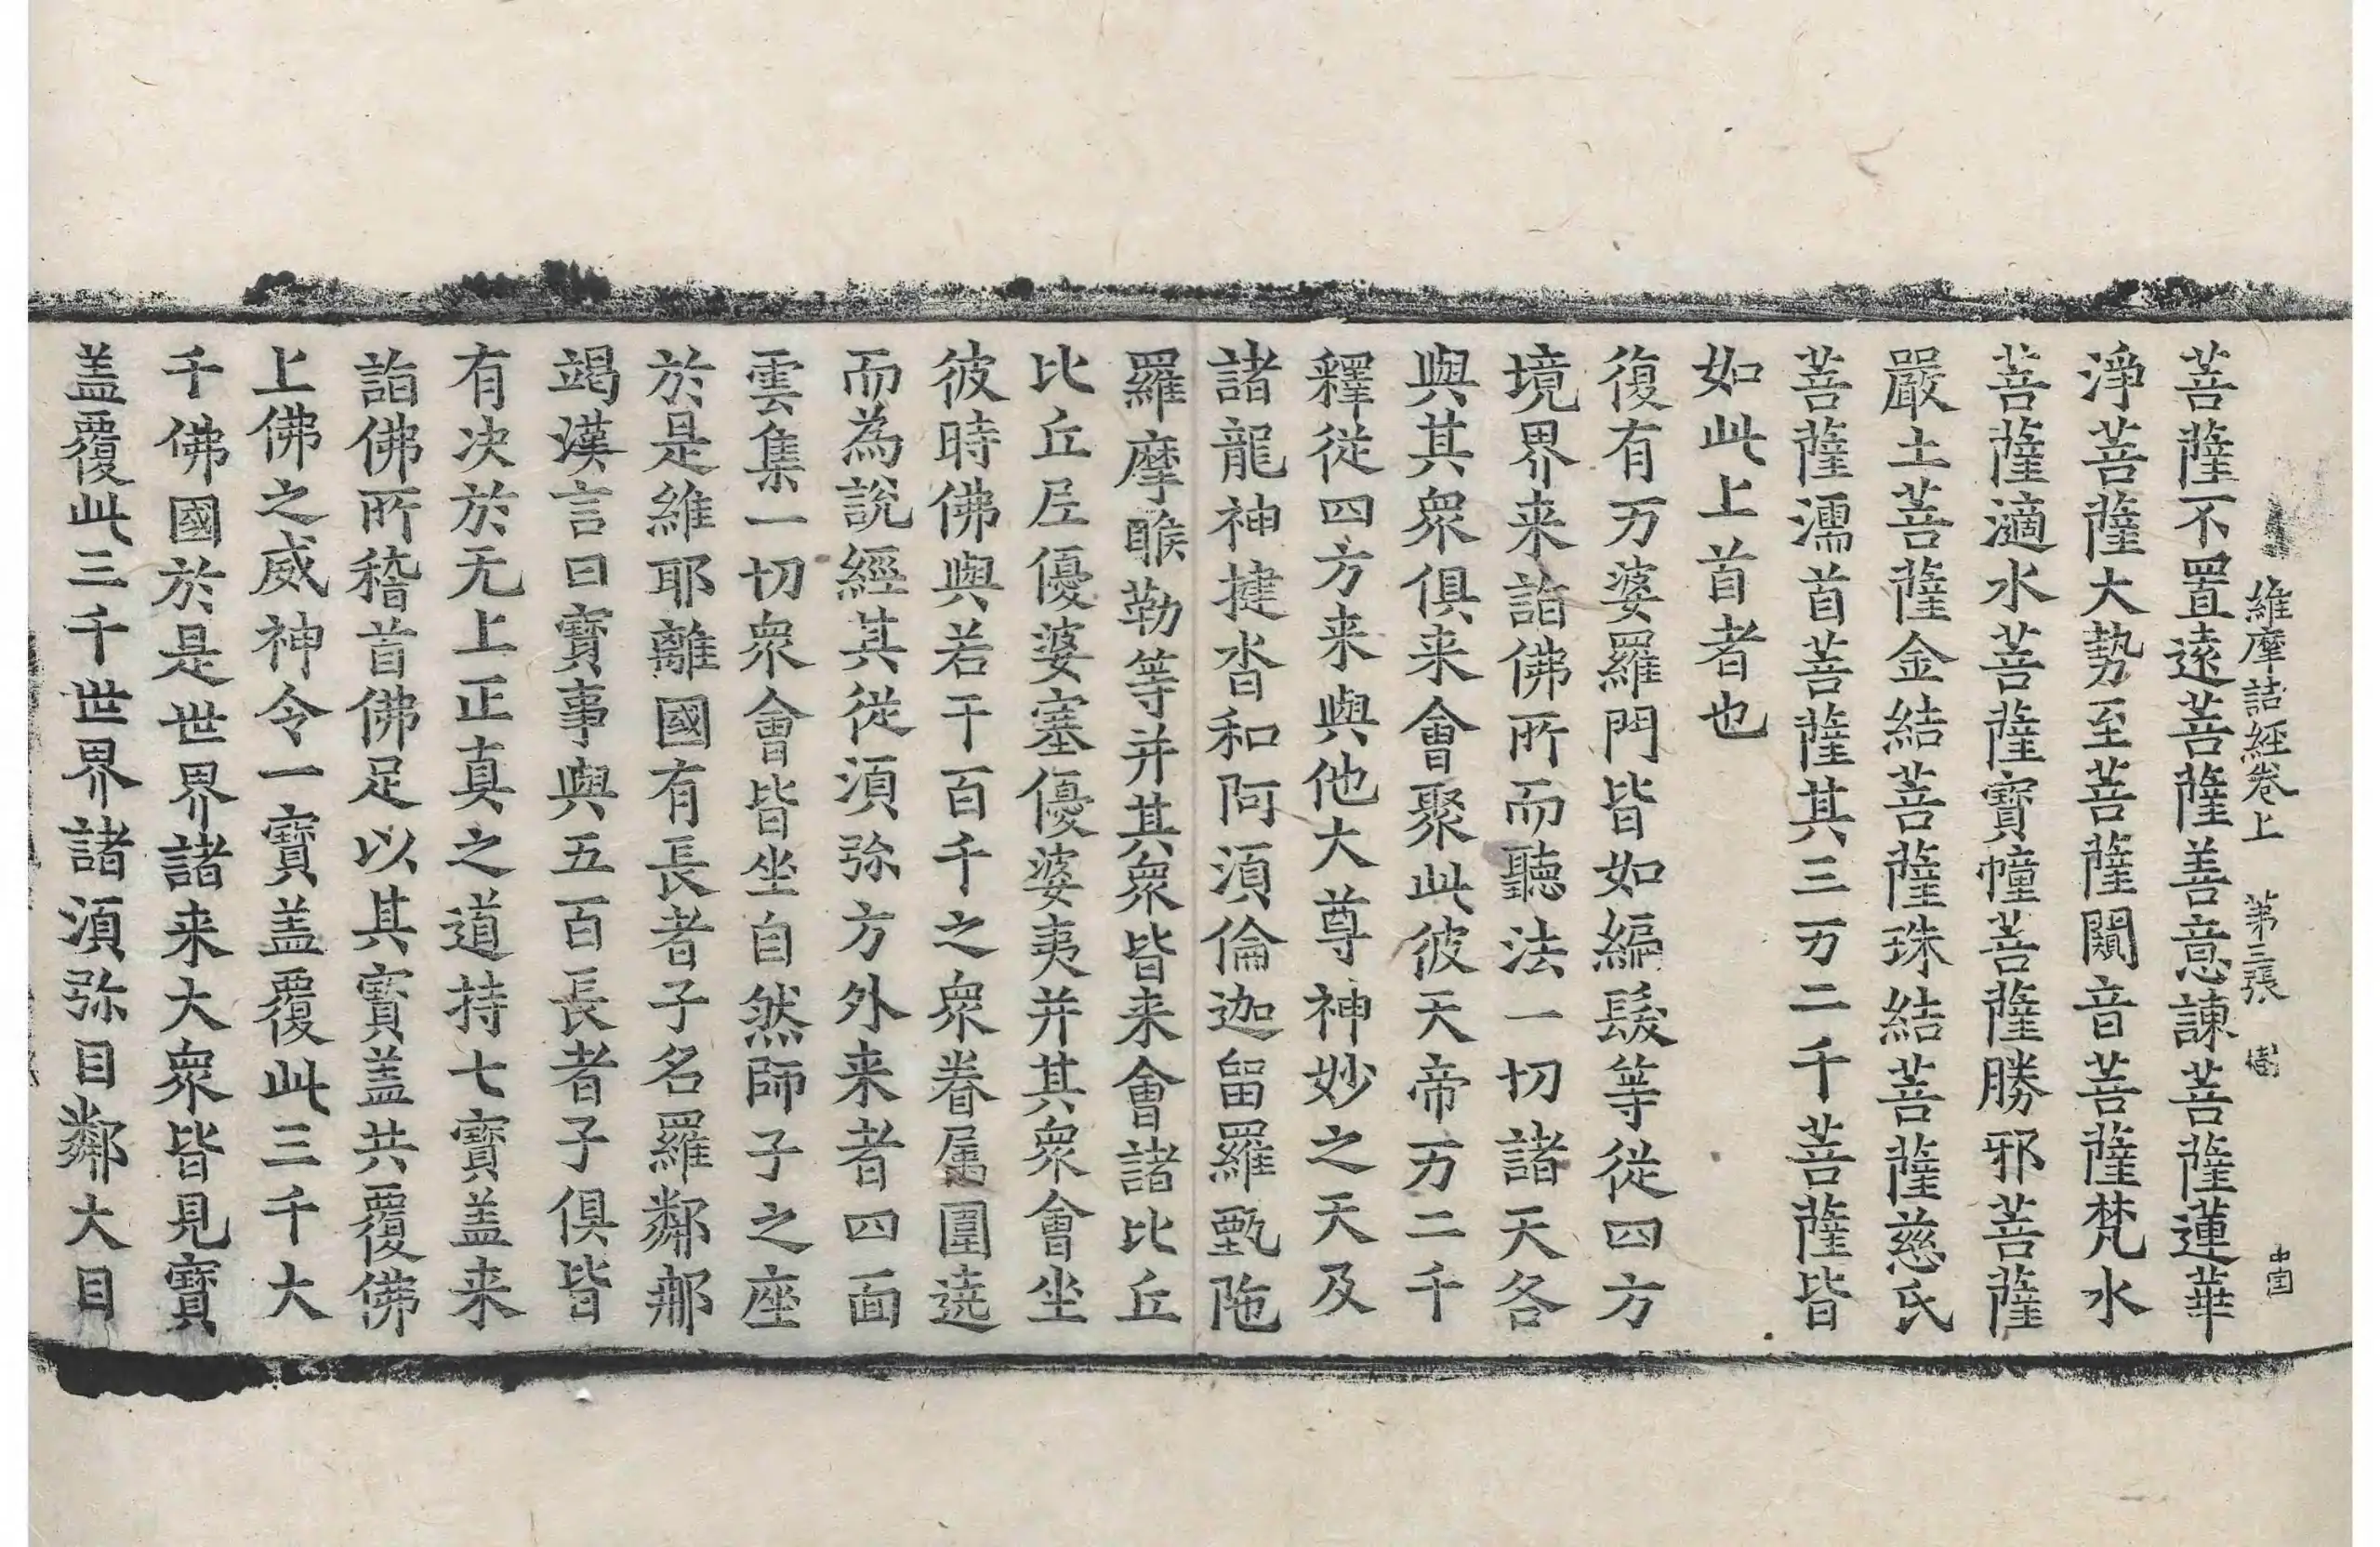 維摩詰經卷上 第三張 樹
菩薩不置遠菩薩善意諫菩薩蓮華
淨菩薩大勢至菩薩闚音菩薩梵水
菩薩適水菩薩寶幢菩薩勝邪菩薩
嚴土菩薩金結菩薩珠結菩薩慈氏
菩薩濡首菩薩其三万二千菩薩皆
如此上首者也
復有万婆羅門皆如編髮等從四方
境界来詣佛所而聽法一切諸天各
與其衆俱来會聚此彼天帝万二千
釋從四方来與他大尊神妙之天及
諸龍神揵沓和阿須倫迦留羅甄陁
羅摩睺勒等并其衆皆来會諸比丘
比丘尼優婆塞優婆夷并其衆會坐
彼時佛與若干百千之衆眷屬圍遶
而為說經其從須弥方外来者四面
雲集一切衆會皆坐自然師子之座
於是維耶離國有長者子名羅鄰那
竭漢言曰寶事與五百長者子俱皆
有决於无上正真之道持七寶盖来
詣佛所稽首佛足以其寶盖共覆佛
上佛之威神令一寶盖覆此三千大
千佛國於是世界諸来大衆皆見寶
盖覆此三千世界諸須弥目鄰大目